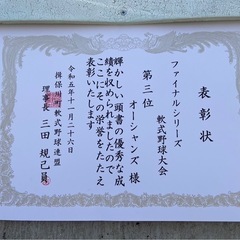 表彰状
ファイナルシリーズ
軟式野球大会
第三位
オーシャンズ様
輝かしい頭書の優秀な成
績を収められましたので
ここにその栄誉をたたえ
表彰いたします
令和五年十一月二十六日
揖保川町軟式野球連盟
理事長 三田規己